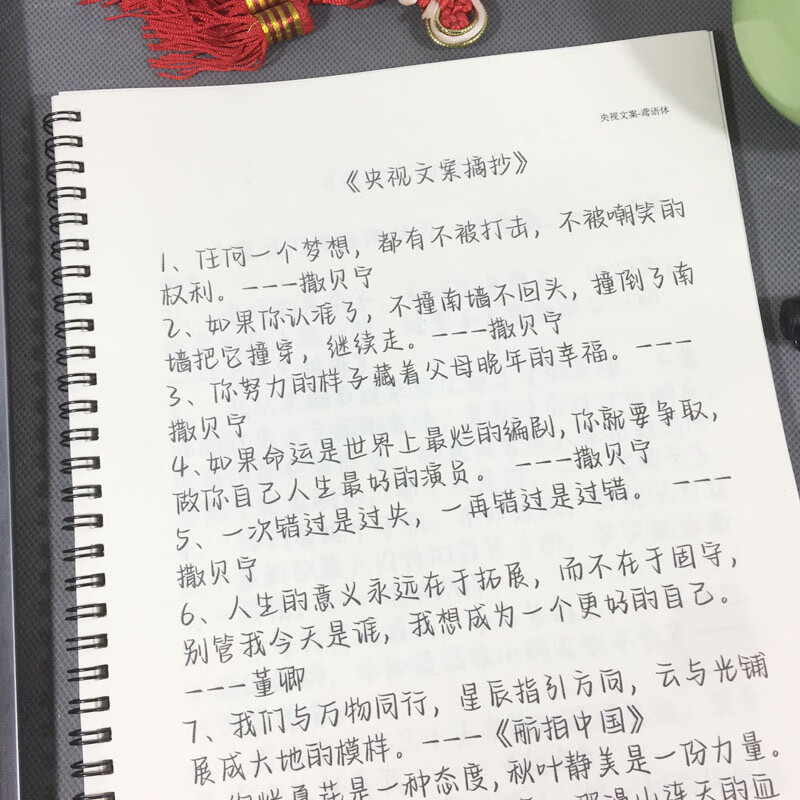 央视文案-鸢语体
《央视文案摘抄》
1、任何一个梦想，都有不被打击，不被嘲笑的
权利。---撒贝宁
2、如果你认准了，不撞南墙不回头，撞倒了南
墙把它撞穿，继续走。---撒贝宁
3、你努力的样子藏着父母晚年的幸福。---
撒贝宁
4、如果命运是世界上最烂的编剧，你就要争取，
做你自己人生最好的演员。---撒贝宁
5、一次错过是过失，一再错过是过错。---
撒贝宁
6、人生的意义永远在于拓展，而不在于固守，
别管我今天是谁，我想成为一个更好的自己。
---董卿
7、我们与万物同行，星辰指引方向，云与光铺
展成大地的模样。---《航拍中国》
绚烂夏花是一种态度，秋叶静美是一份力量。
漫山连天的血